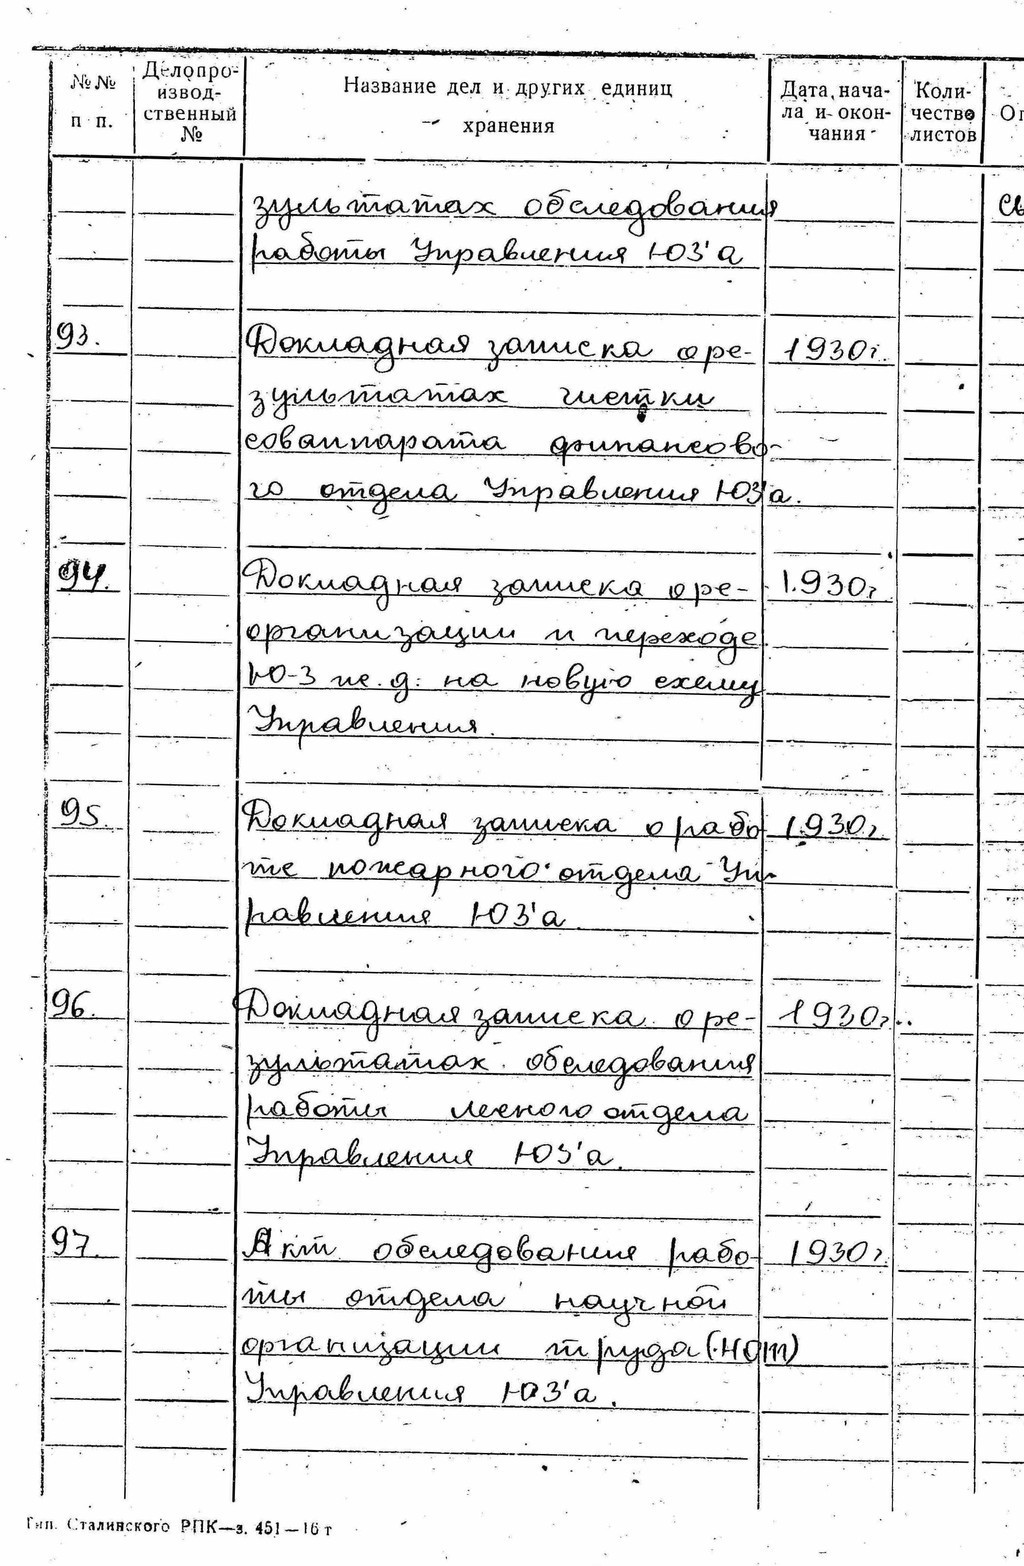 №№ п п.
Делопро-
извод-
ственный
№
Название дел и других единиц
хранения
Дата, нача-
ла и окон-
чания
Коли-
чество
листов
Оп
зультатах обследования
работы Управления ЮЗ'а
93. Докладная записка о ре- 1930г.
зультатах чистки
соваппарата финансово-
го отдела Управления ЮЗ'а.
94. Докладная записка о ре- 1930г
организации и переходе
Ю-З ж.д. на новую схему
Управления.
95. Докладная записка о рабо- 1930г.
те пожарного отдела Уп-
равления ЮЗ'а
96. Докладная записка о ре- 1930г.
зультатах обследования
работы лесного отдела
Управления ЮЗ'а.
97. Акт обследования рабо- 1930г.
ты отдела научной
организации труда (НОТ)
Управления ЮЗ'а.
Тип. Сталинского РПК—з. 451—16 т